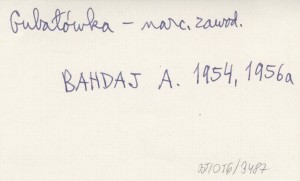 Gubałówka – narc. zawod.
BAHDAJ A. 1954, 1956a
/9487